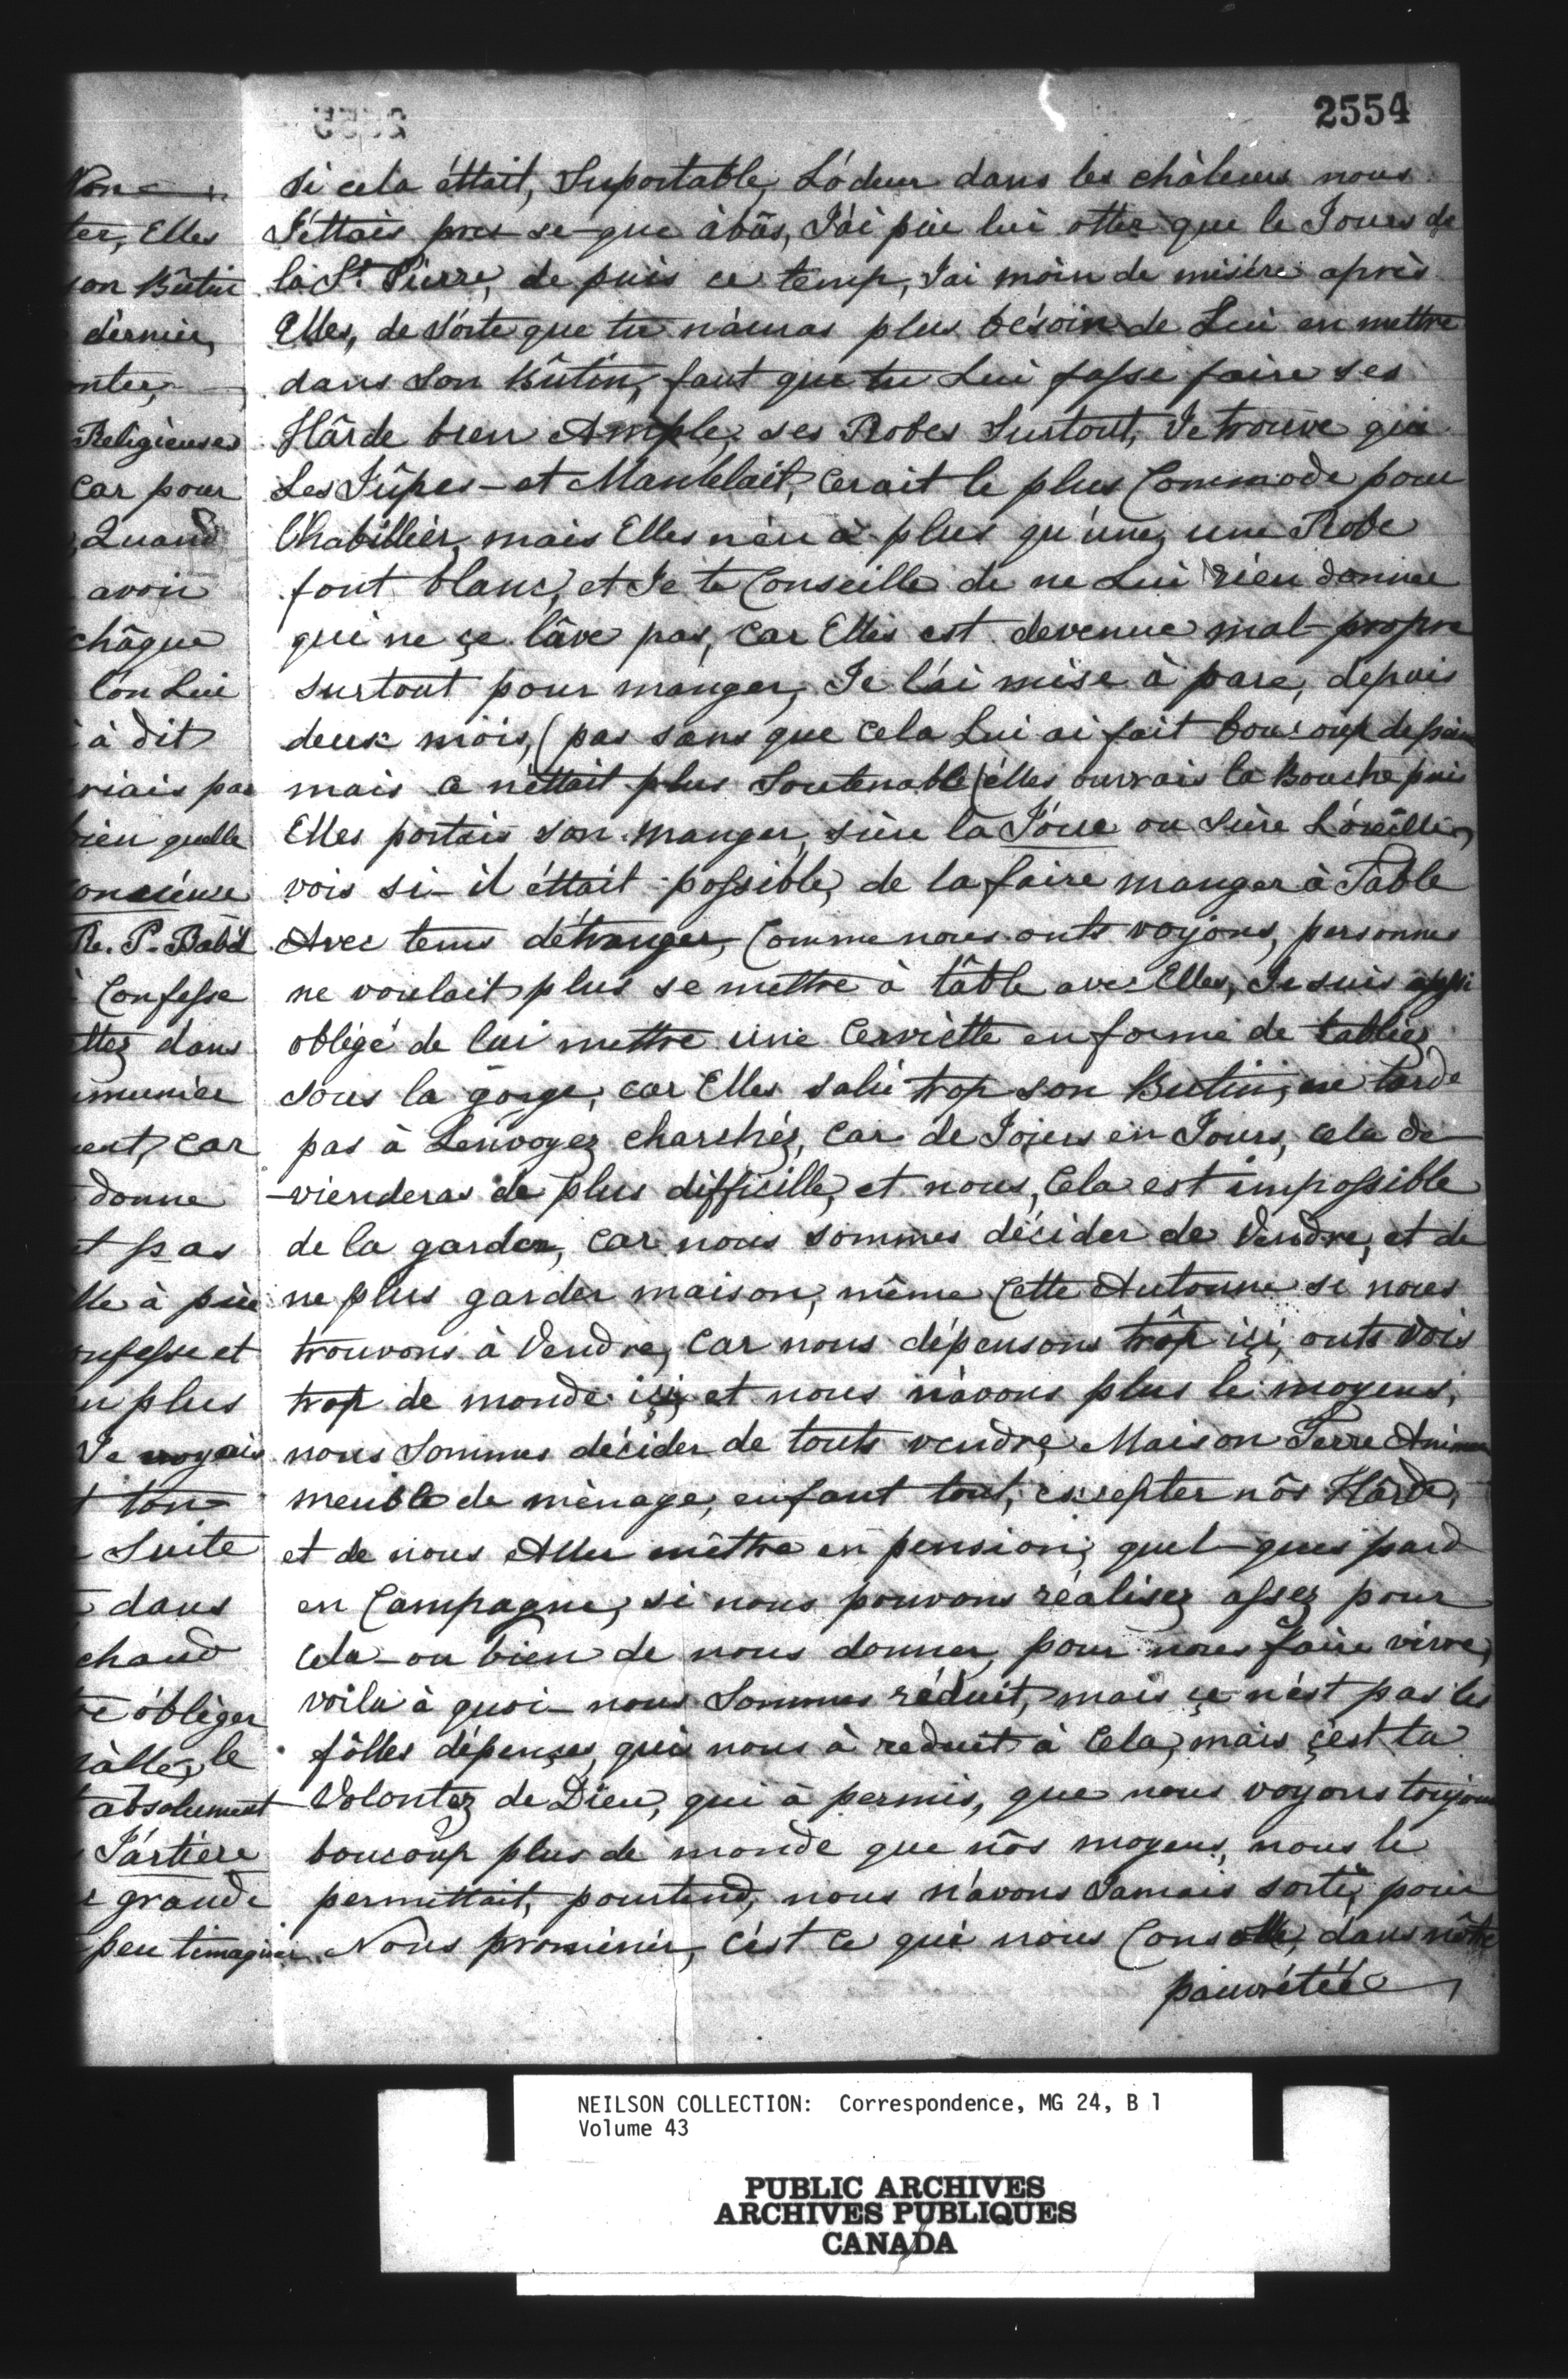 2554
Non
ter, Elles
son Bûtin
dèrnier,
nter,
Religieuses
Car pour
Quand
avoir
châque
lon Lui
à dit
riais pas
bien quelle
onsciénce
Re. P. Bab
Confesse
ttez dans
munier
ent, car
donne
et pas
lle à pùe
onfesse et
u plus
Je voyais
t ton
Suite
dans
chaud
obliger
sàlle, le
absolument
Jártière
grande
peu timaginer
Si cela éttait, Suportable, L'ódeur dans les châleurs nous
S'éttais pres-se-que àbâs, J'ái pùe lui otter que le Jours de
la St. Pierre, de puis ce temp, J'ai moin de misére après
Elles, de sórte que tu n'àuras plus bésoin de Lui en mettre
dans Son Bûtin, faut que tu Lui fasse faire ses
Hârde bien Ample, ses Robes Surtout, Je trouve que
Les Jûpes - et Mantelait, Cerait le plus Commode pour
l'habillièr, mais Elles n'èn à plus qu'une, une Robe
font blanc, et Je te Conseille de ne Lui rién donner
qui ne çe lâve pas, Car Elles est devenue mal-propre
surtout pour manger, Je l'ái mise à pare, depuis
deux mois, (pas sans que cela Lui ai fait boucoup de pein
mais ce n'éttait plus Soutenable (élles ouvrais la Bouche puis
Elles portais son manger, sùre la Jóue ou Sùre L'óreille,
vois si-il éttait possible, de la faire manger à Table
Avec tems détranger, Comme nous onts voyons, personnes
ne voulait plus se mettre à tâble avec Elles, Je suis
obligé de lui mettre une Cerviètte en forme de tablier,
sous la gorge, car Elles sali trop son Butin, ne tarde
pas à Lenvoyez charchéz, Car de Jours en Jours, cela de-
-vienderas de plus difficille, et nous, Cela est impossible
de la garder, Car nous sommes décider de Vendre, et de
ne plus garder maison, même Cette Autonne si nous
trouvons à Vendre, Car nous dépensons trôp içi, onts Vois
trop de monde içi, et nous n'avons plus le moyens,
nous Sommes décider de touts vendre, Maison Terre Animeu
meuble de mènage, enfant tout, excepter nôs Hârde,
et de nous Aller mêttre en pension, quel-ques pard
en Campagne, si nous pouvons réalisez assez pour
Cela - ou bien de nous donner, pour nous faire vivre,
voila à quoi nous Sommes réduit, mais çe n'est pas les
fôlles dépenses, qui nous à reduit à Cela, mais çest la
Volontez de Dieu, qui à permis, que nous voyons toujours
boucoup plus de monde que nôs moyens, nous le
permettait, pourtend, nous n'avons Jamais sorti, pour
Nous prominér, c'est ce qui nous Consolle, dans nôtre
pauvrétée
NEILSON COLLECTION: Correspondence, MG 24, B 1
Volume 43
PUBLIC ARCHIVES
ARCHIVES PUBLIQUES
CANADA